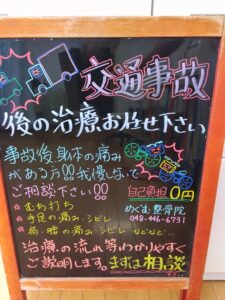 交通事故
後の治療お任せ下さい
事故後、身体の痛み
がある方!!我慢しないで
ご相談下さい!!
☆むち打ち
☆手足の痛み・シビレ
☆肩・腰の痛み・シビレ などなど…
自己負担 0円
めぐみ整骨院
048-446-6731
治療の流れ等わかりやすく
ご説明します。まずは相談